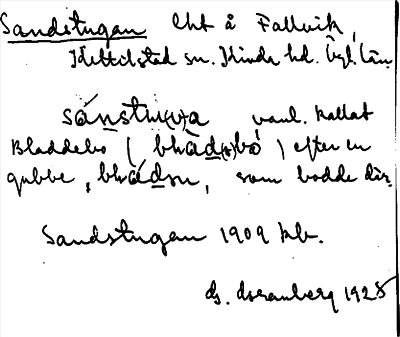 Sandstugan lht å Fallvik,
Kettilstad sn. Kinda hd. Ögl. län.
sánstu(v)a vanl. kallat
Bladdebo ( blàd(ə)bó ) efter en
gubbe, bládn, som bodde där.
Sandstugan 1909 kb.
1928